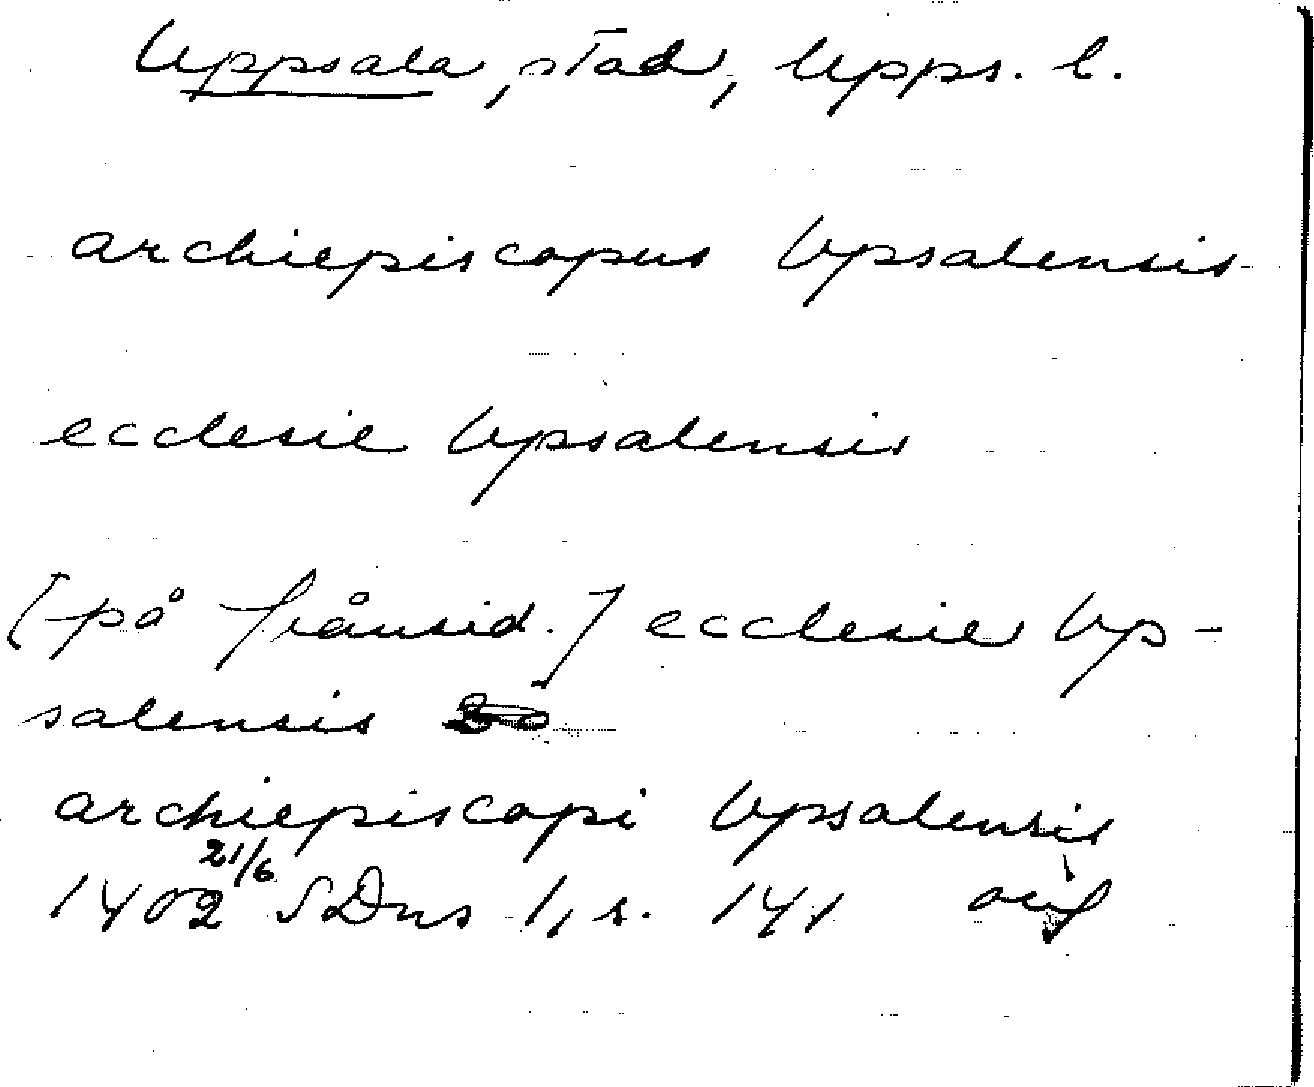 Uppsala, stad, Upps. l.
archiepiscopus Upsalensis
ecclesie Upsalensis
[på frånsid.] ecclesie Up-
salensis
archiepiscopi Upsalensis
1402 21/6 SDns 1, s. 141 avs